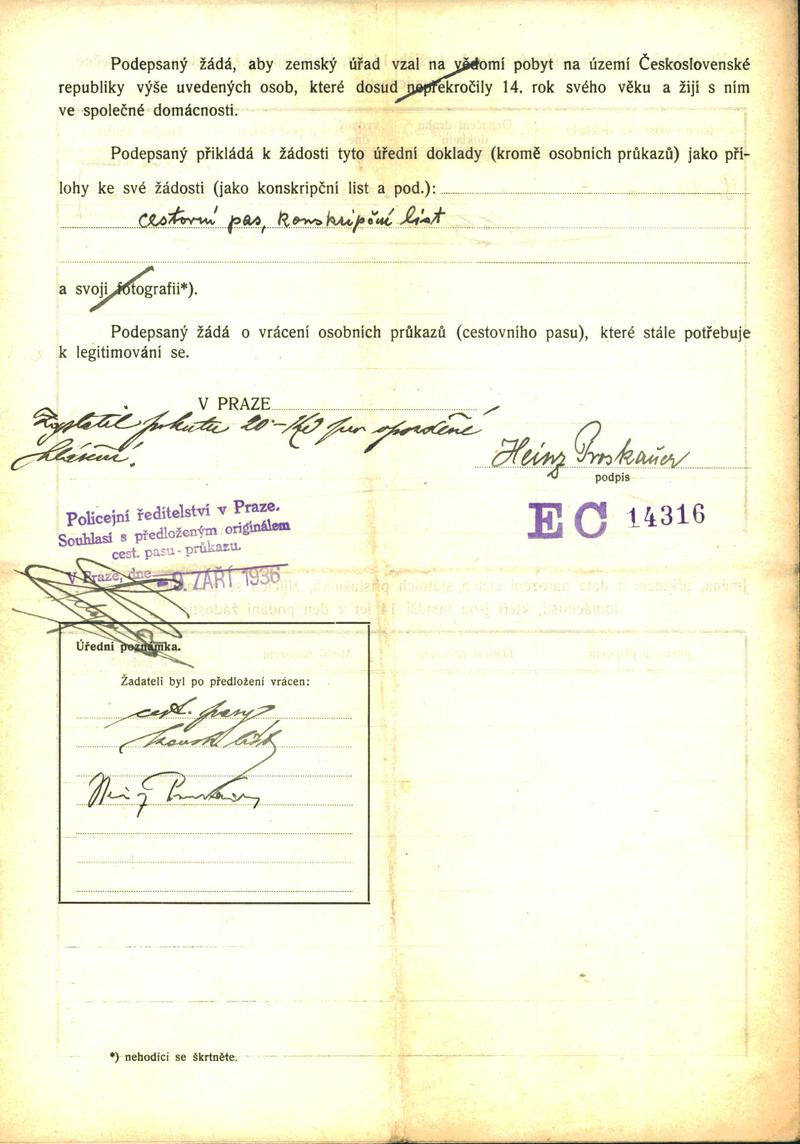 Podepsaný žádá, aby zemský úřad vzal na vědomí pobyt na území Československé
republiky výše uvedených osob, které dosud nepřekročily 14. rok svého věku a žijí s ním
ve společné domácnosti.
Podepsaný přikládá k žádosti tyto úřední doklady (kromě osobních průkazů) jako pří-
lohy ke své žádosti (jako konskripční list a pod.):
cestovní pas, konskripční list
a svoji fotografii*).
Podepsaný žádá o vrácení osobních průkazů (cestovního pasu), které stále potřebuje
k legitimování se.
V PRAZE
Zaplatil pokutu 20 - Kč pro opozděné
hlášení.
Heinz Proskauer
podpis
EC 14316
Policejní ředitelství v Praze.
Souhlasí s předloženým originálem
cest. pasu - průkazu.
V Praze, dne -9. ZÁŘÍ 1936
Úřední poznámka.
Žadateli byl po předložení vrácen:
cest. pasy
konsk. list
Heinz Proskauer
*) nehodící se škrtněte.